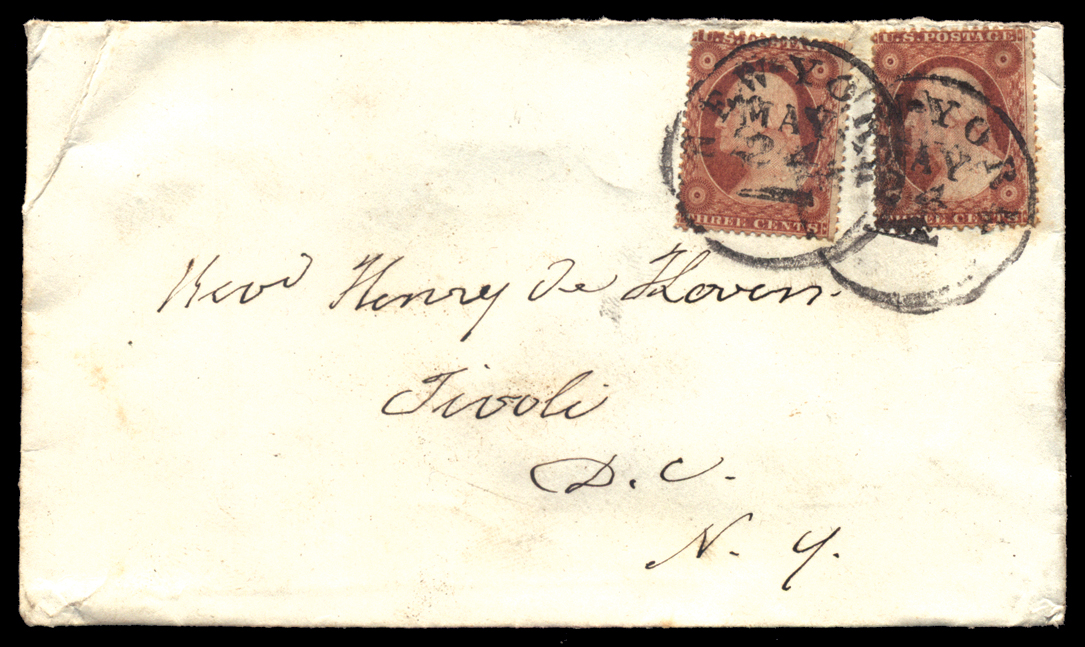 U.S. POSTAGE U.S. POSTAGE
NEW YORK YOR
MAY MAY
4
THREE CENTS THREE CENTS
Revd Henry De Koven.
Tivoli
D. C.
N. Y.